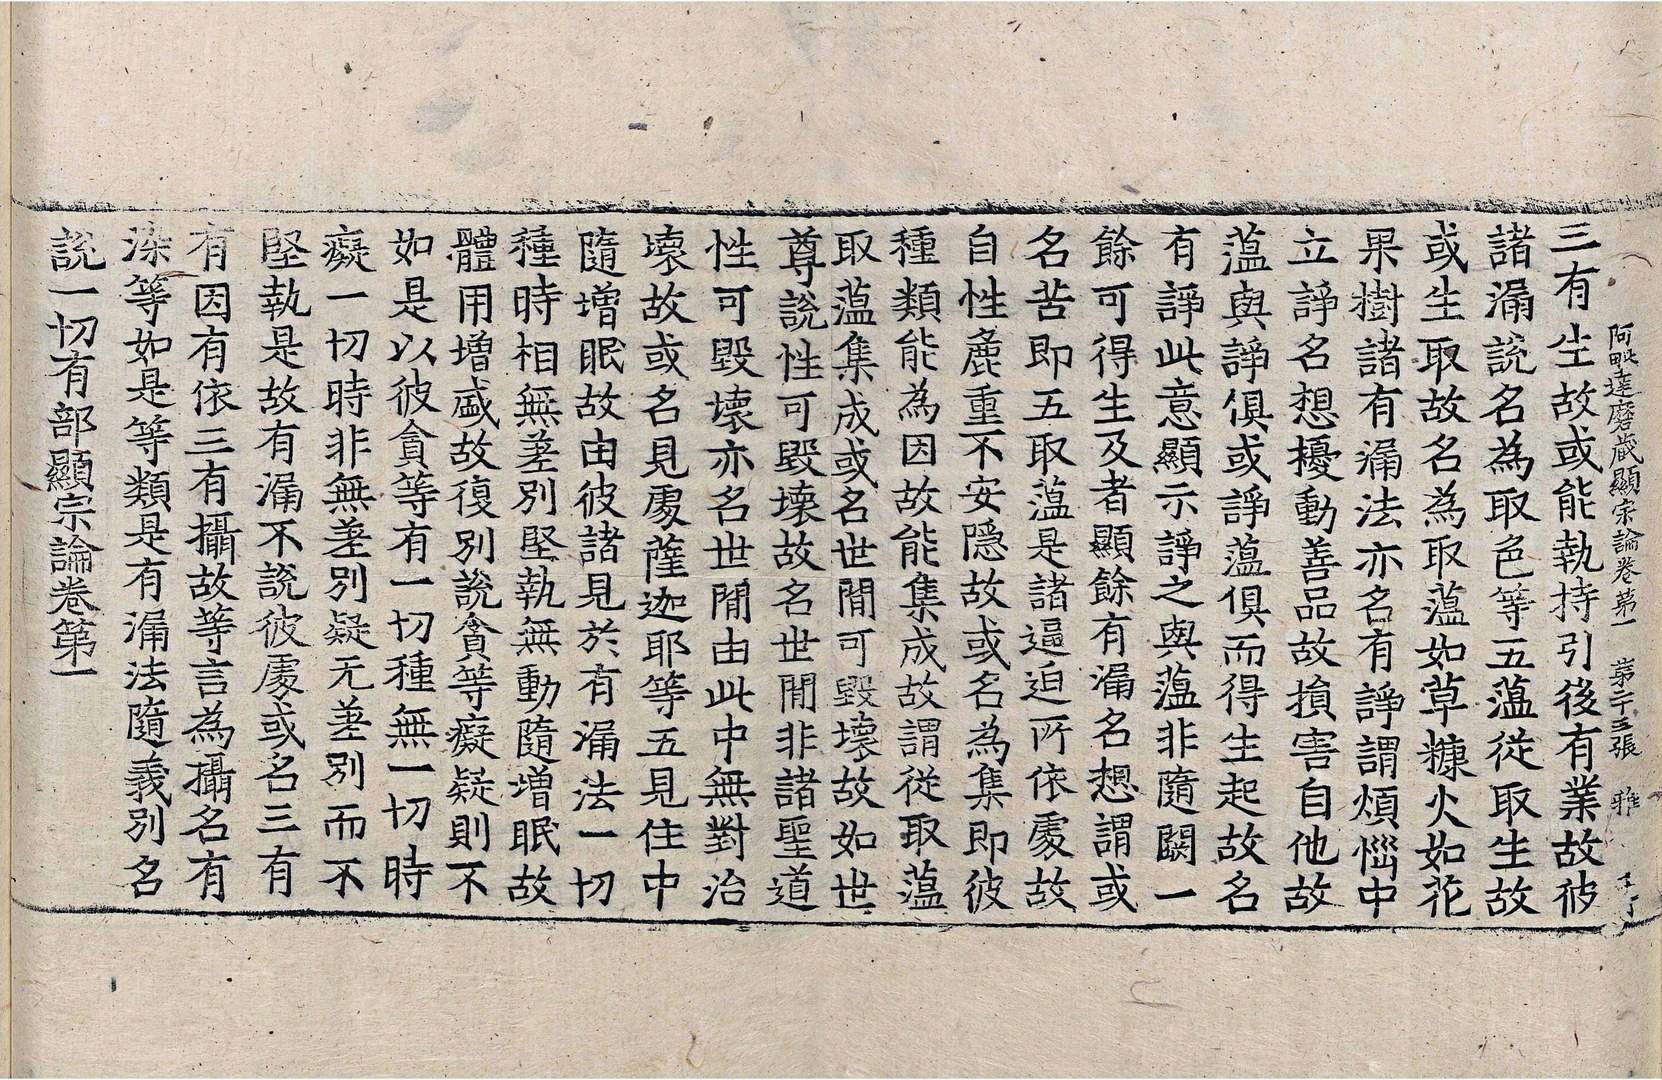 阿毗達磨藏顯宗論卷第一 第二十五張 雅
三有生故或能執持引後有業故彼
諸漏說名為取色等五蕰從取生故
或生取故名為取蕰如草糠火如花
果樹諸有漏法亦名有諍謂煩惱中
立諍名想擾動善品故損害自他故
蕰與諍俱或諍蕰俱而得生起故名
有諍此意顯示諍之與蕰非隨闕一
餘可得生及者顯餘有漏名想謂或
名苦即五取蕰是諸逼迫所依處故
自性麁重不安隱故或名為集即彼
種類能為因故能集成故謂從取蕰
取蕰集成或名世間可毀壞故如世
尊說性可毀壞故名世間非諸聖道
性可毀壞亦名世間由此中無對治
壞故或名見處薩迦耶等五見住中
隨增眠故由彼諸見於有漏法一切
種時相無差別堅執無動隨增眠故
體用增盛故復別說貪等癡疑則不
如是以彼貪等有一切種無一切時
癡一切時非無差別疑无差別而不
堅執是故有漏不說彼處或名三有
有因有依三有攝故等言為攝名有
染等如是等類是有漏法隨義別名
說一切有部顯宗論卷第一